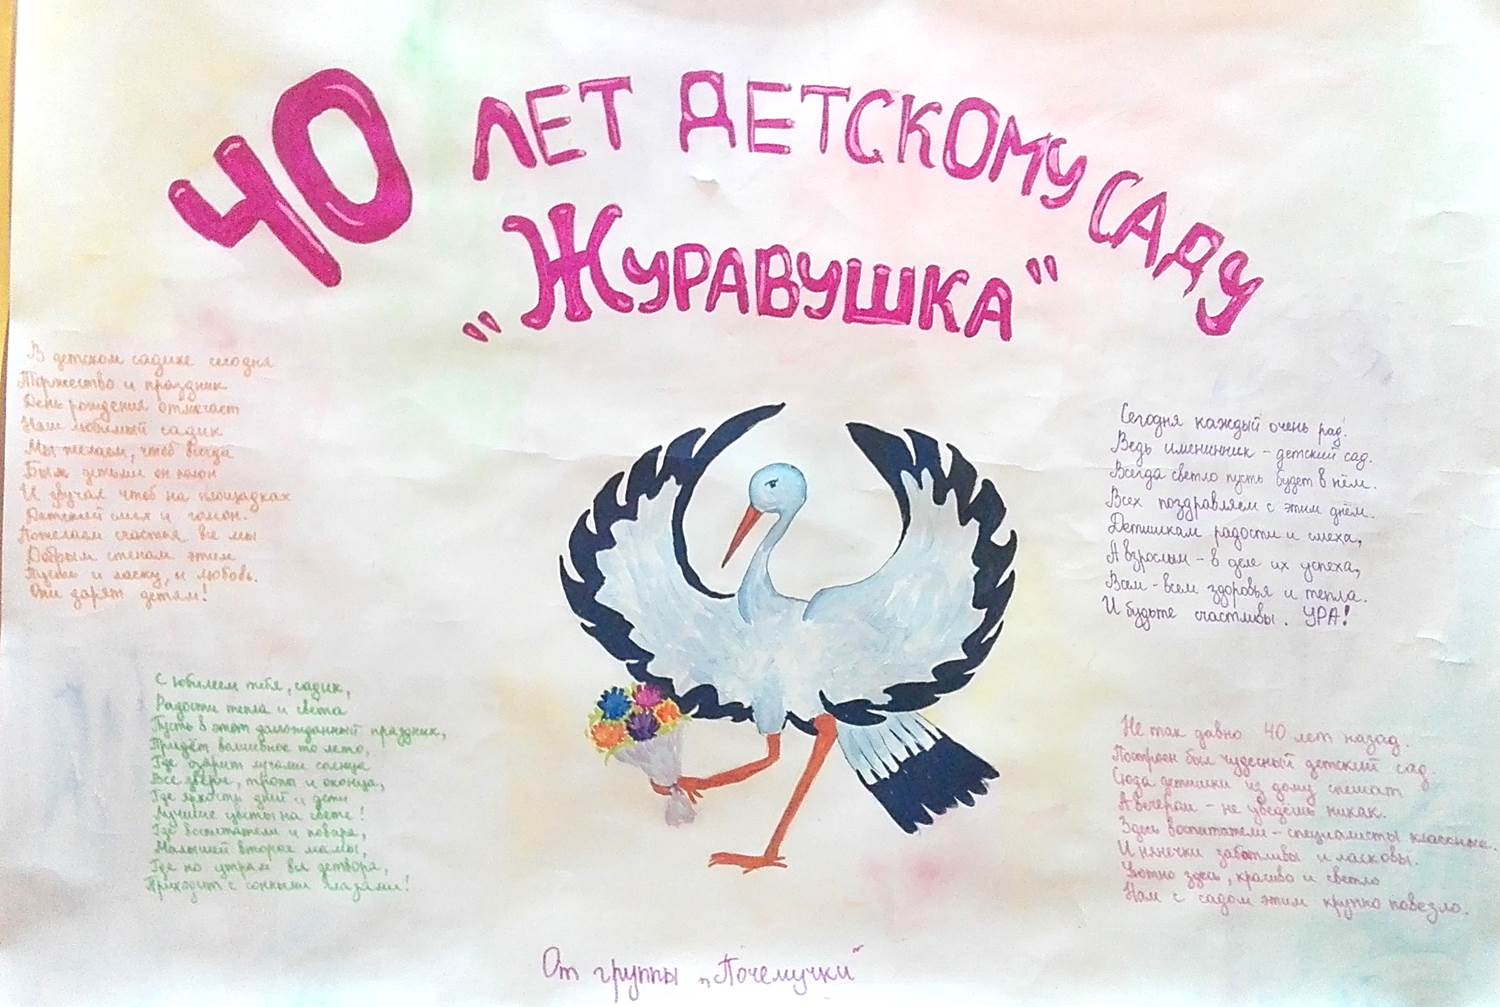 40 ЛЕТ ДЕТСКОМУ САДУ
„ЖУРАВУШКА"
В детском садике сегодня
Торжество и праздник
День рождения отмечает
Наш любимый садик
Мы желаем, чтоб всегда
Был детьми он полон
И звучал чтоб на площадках
Детский смех и гомон.
Пожелаем счастья все мы
Добрым стенам этим
Пусть и ласку, и любовь.
Они дарят детям!
С юбилеем тебя, садик,
Радости тепла и света
Пусть в этот долгожданный праздник,
Придёт волшебное то лето,
Где озарит лучами солнце
Все двери, тропы и оконца,
Где яркость дней и дети
Лучшие цветы на свете!
Где воспитатели и повара,
Малышей вторые мамы,
Где по утрам вся детвора,
Приходит с сонными глазами!
Сегодня каждый очень рад!
Ведь именинник - детский сад.
Всегда светло пусть будет в нём.
Всех поздравляем с этим днём.
Детишкам радости и смеха,
А взрослым - в деле их успеха,
Всем - всем здоровья и тепла.
И будьте счастливы. УРА!
Не так давно 40 лет назад.
Построен был чудесный детский сад.
Сюда детишки из дому спешат
А вечером - не уведёшь никак.
Здесь воспитатели - специалисты классные.
И нянечки заботливы и ласковы.
Уютно здесь, красиво и светло
Нам с садом этим крупно повезло.
От группы „Почемучки"